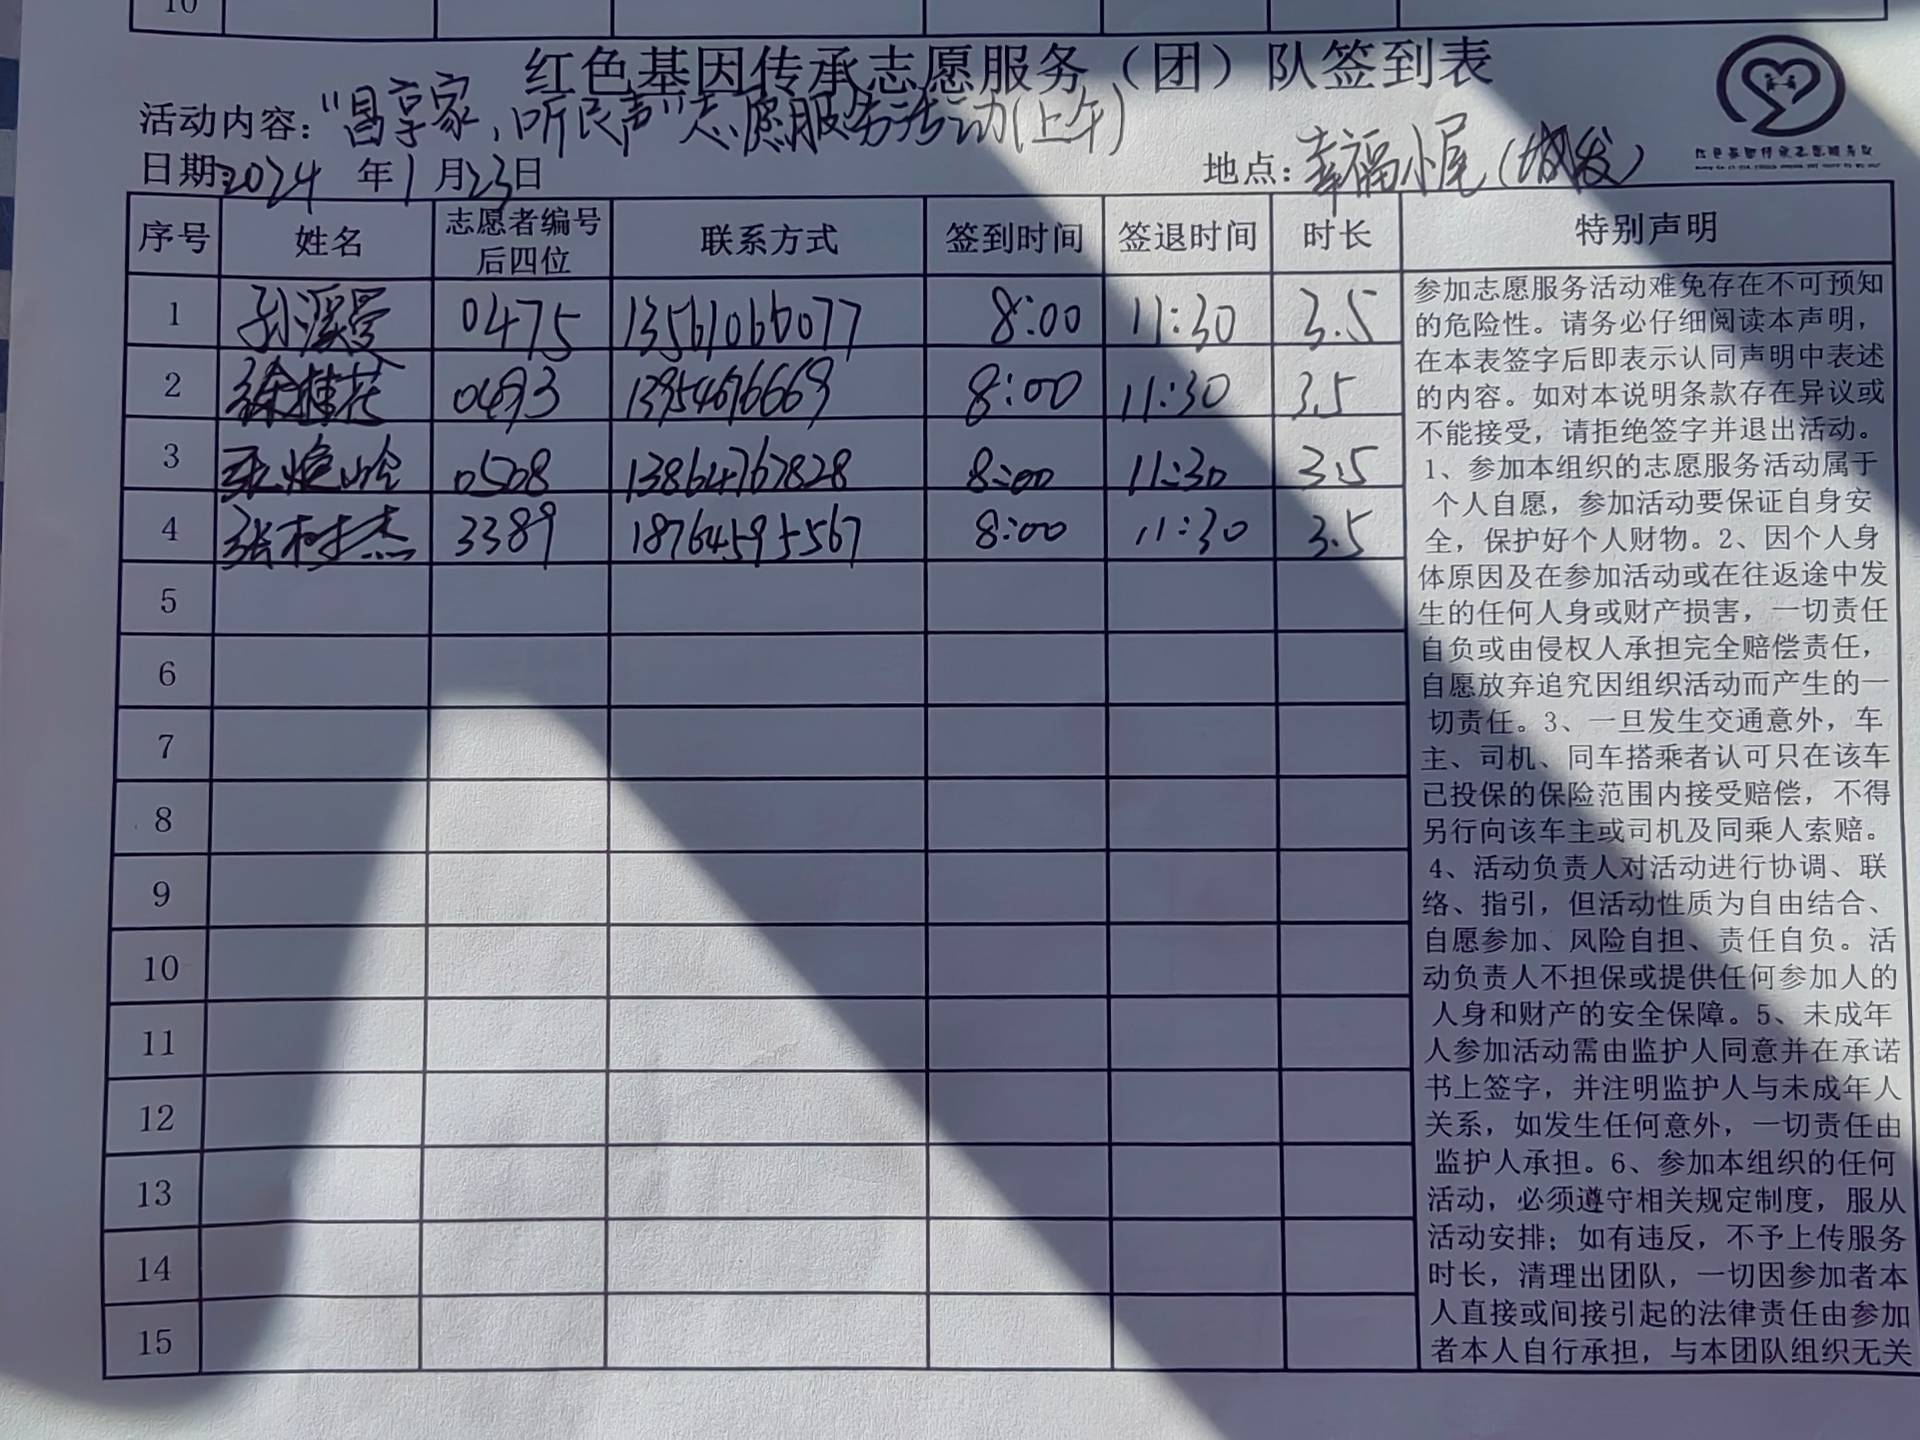 10
红色基因传承志愿服务（团）队签到表
活动内容："昌享家,听民声"志愿服务活动(上午)
日期:2024 年1月23日 地点:幸福小尾(城发)
序号 姓名 志愿者编号后四位 联系方式 签到时间 签退时间 时长 特别声明
1 孙溪曼 0475 13561060077 8:00 11:30 3.5
2 徐桂花 0493 13954676669 8:00 11:30 3.5
3 0508 13864767828 8:00 11:30 3.5
4 张树杰 3389 18764595567 8:00 11:30 3.5
5
6
7
8
9
10
11
12
13
14
15
参加志愿服务活动难免存在不可预知
的危险性。请务必仔细阅读本声明，
在本表签字后即表示认同声明中表述
的内容。如对本说明条款存在异议或
不能接受，请拒绝签字并退出活动。
1、参加本组织的志愿服务活动属于
个人自愿，参加活动要保证自身安
全，保护好个人财物。2、因个人身
体原因及在参加活动或在往返途中发
生的任何人身或财产损害，一切责任
自负或由侵权人承担完全赔偿责任，
自愿放弃追究因组织活动而产生的一
切责任。3、一旦发生交通意外，车
主、司机、同车搭乘者认可只在该车
已投保的保险范围内接受赔偿，不得
另行向该车主或司机及同乘人索赔。
4、活动负责人对活动进行协调、联
络、指引，但活动性质为自由结合、
自愿参加、风险自担、责任自负。活
动负责人不担保或提供任何参加人的
人身和财产的安全保障。5、未成年
人参加活动需由监护人同意并在承诺
书上签字，并注明监护人与未成年人
关系，如发生任何意外，一切责任由
监护人承担。6、参加本组织的任何
活动，必须遵守相关规定制度，服从
活动安排；如有违反，不予上传服务
时长，清理出团队，一切因参加者本
人直接或间接引起的法律责任由参加
者本人自行承担，与本团队组织无关